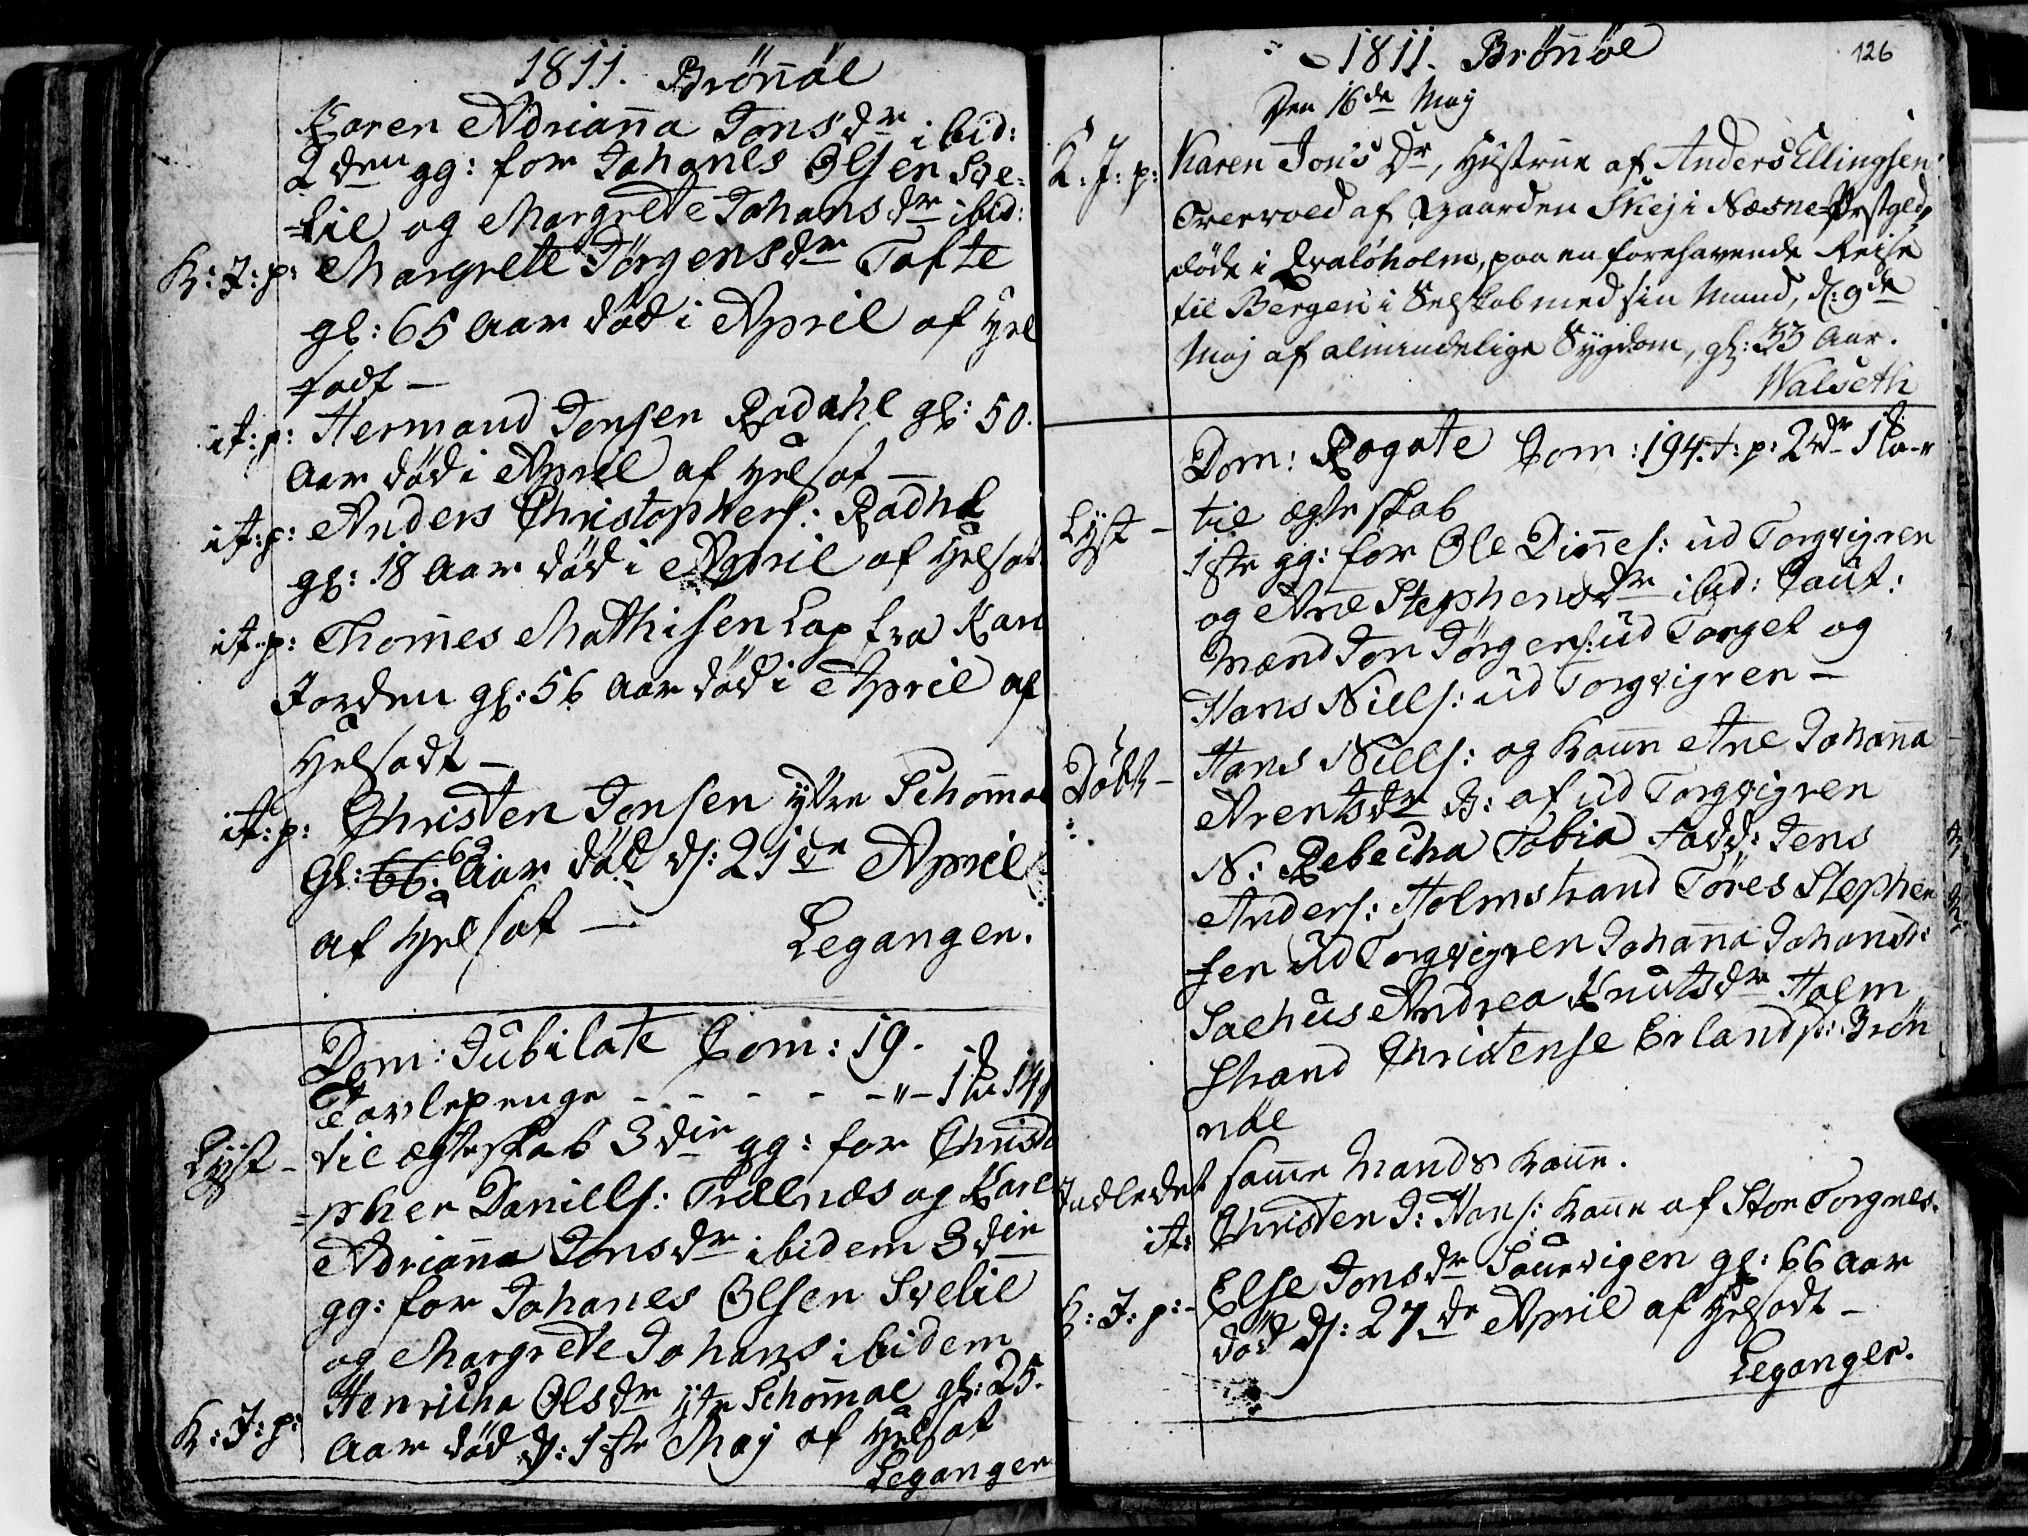 1811. Brönöe
Karen Adriana Jonsdr ibid:
2den gg: for Johanes Olsen Sve-
=lie og Margrete Johansdr ibid:
K: J: p: Margrete Jörgensdr Tofte
gl: 65 Aar död i April af Hel
sodt —
it: p: Hermand Jonsen Rodahl gl: 50.
Aar död i April af Helsot —
it: p: Anders Christophers: Rodhl
gl: 18 Aar död i April af Helsot
it: p: Thomes Mathisen Lap fra
Jorden gl: 56 Aar död i April af
Helsodt —
it: p: Christen Jonsen ytre Schomoe
Gl: 66. 62 Aar död d: 21de April
af Helsot — Legangen.
Dom: Jubilate Com: 19.
Tavlepenge - - - - - " - 1 14
Lyst - til ægteskab 3die gg: for Christo
=pher Daniels: Trælnæs og Karen
Adriana Jonsdr ibidem 3die
gg: for Johanes Olsen Svelie
og Margrete Johans: ibidem
K: J: p: Henricha Olsdr ytr Schomoe gl: 25.
Aar död d: 1ste Maj af Helsot
Leganger
1811. Brönöe
126
Den 16de Maj
K: J: p: Karen Jons Dr, Hustrue af Anders Ellingsen
Trervold af Gaarden Skej i Næsne Prstgld,
døde i Qvaløholm, paa en forehavende Reise
til Bergen i Selskab med sin Mand, d: 9de
Maj af almindelige Sygdom, gl: 33 Aar.
Walseth
Dom: Rogate Com: 194. t: p: 2
Lyst - til ægteskab
1ste gg: for Ole Dines: ud Torgvigen
og Ane Stephensdr ibid: Caut:
mænd Jon Jörgens: ud Torget og
Hans Niels: ud Torgvigen —
Döbt - Hans Niels: og Kone Ane Johanna
Arentsdr B: af ud Torgvigen
N: Rebecha Tobia Fadd: Jens
Anders: Holmstrand Töres Stephen
sen ud Torgvigen Johanna Johansd:
Saehus Andrea Knutsdr Holm
strand Christense Erlandsd: Brön
nöe
Indledet samme Mands Kone.
it: Christen J: Hans: Kone af Stor Torgnes.
K: J: p: - Else Jonsdr Sauevigen gl: 66 Aar
död d: 27de April af Helsodt —
Leganger.